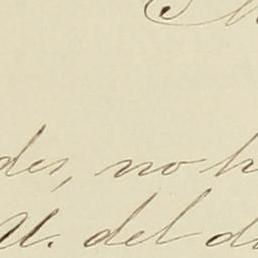 des, no h
U. del d